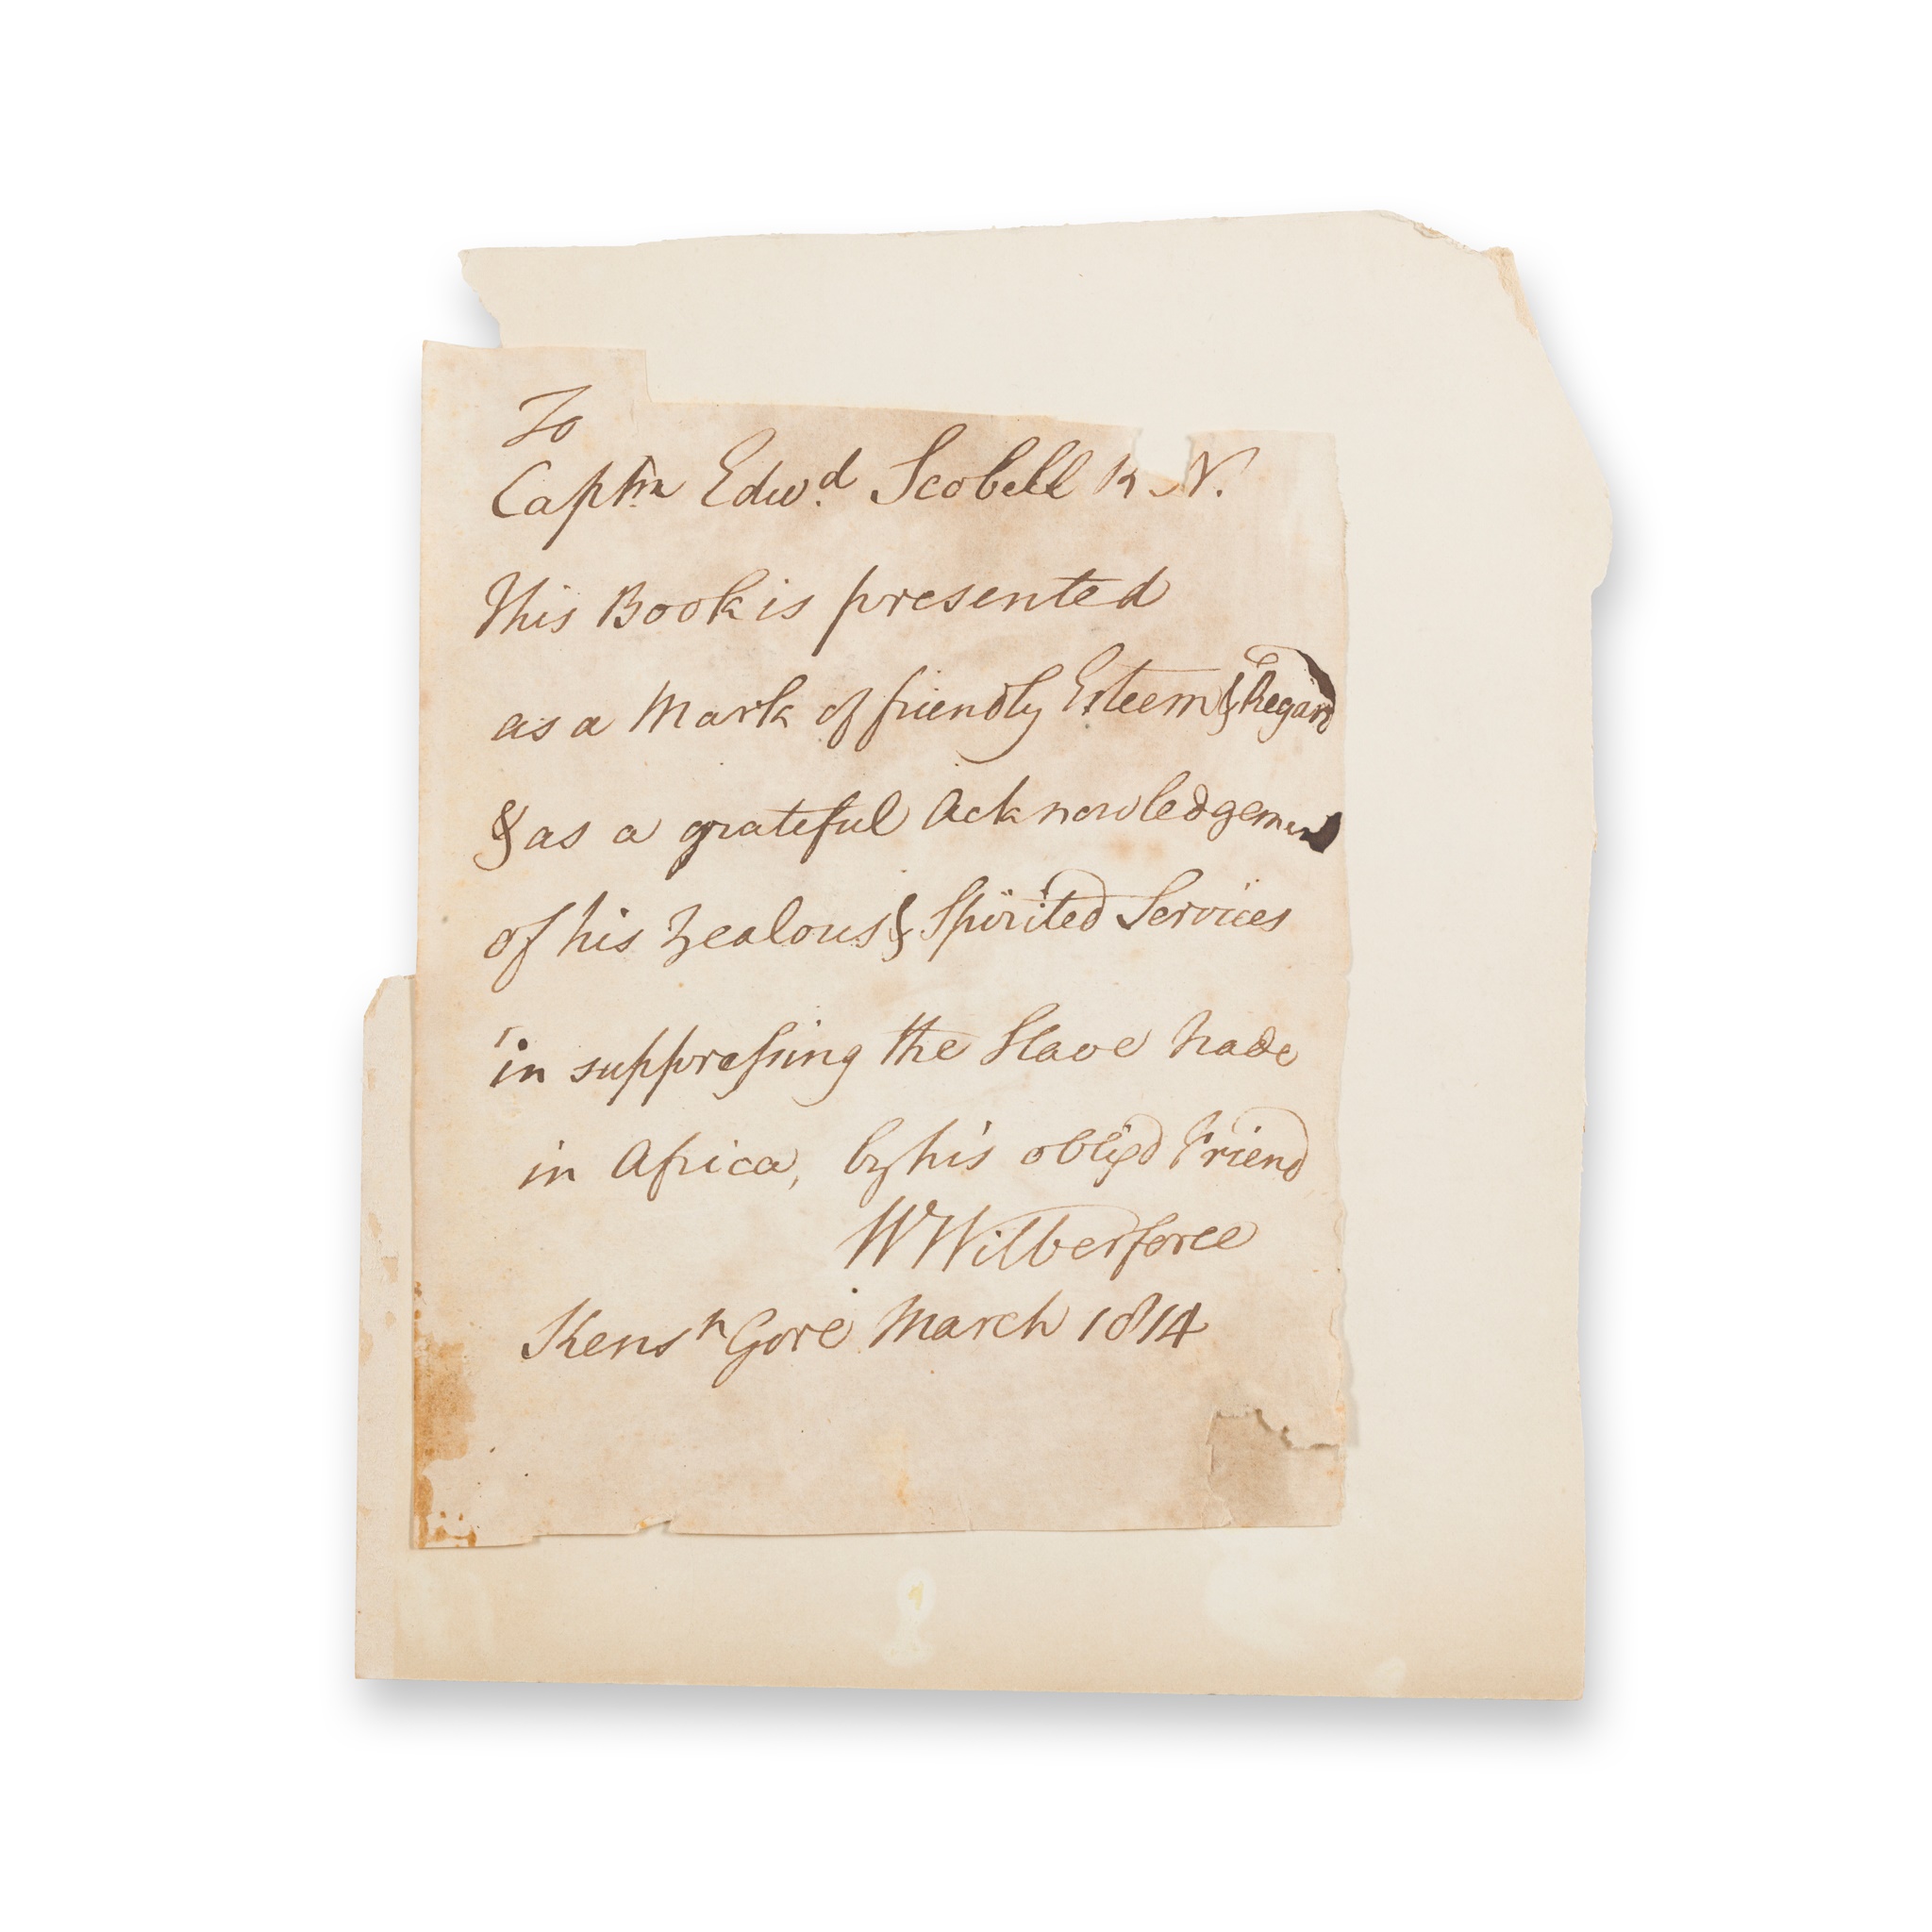 To
Captn Edwd. Scobell R.N.
This Book is presented
as a Mark of friendly Esteem & Regard
& as a grateful Acknowledgement
of his Zealous & Spirited Services
in suppressing the Slave Trade
in Africa, by his oblig'd Friend
W Wilberforce
Kensn Gore March 1814